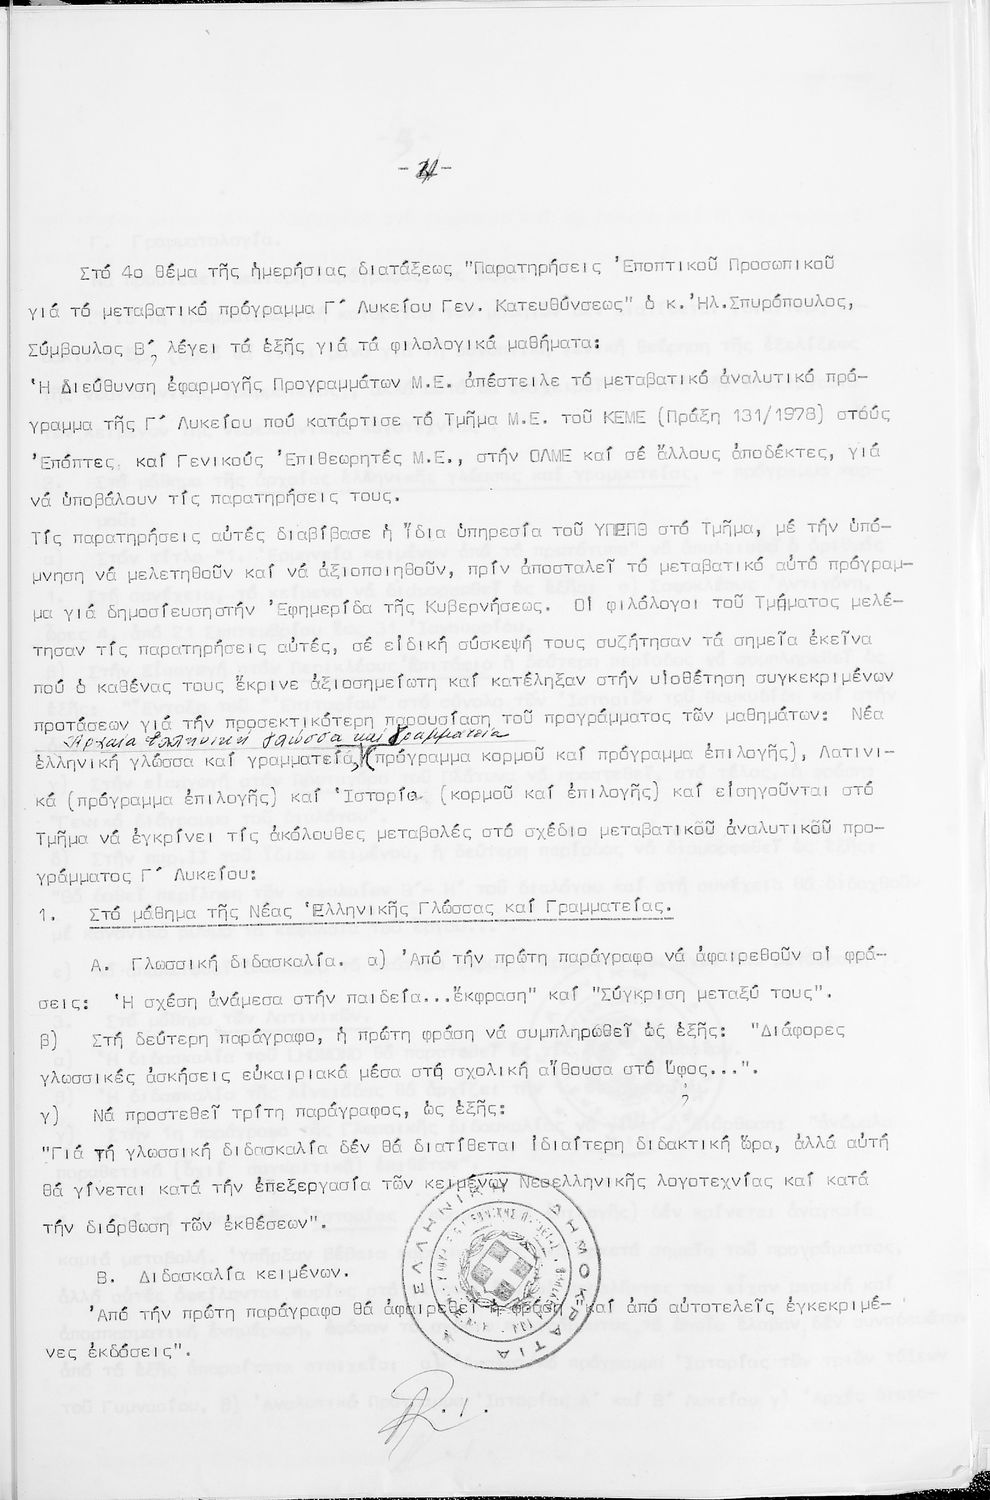 Στό 4ο θέμα τῆς ἡμερήσιας διατάξεως "Παρατηρήσεις Ἐποπτικοῦ Προσωπικοῦ
γιά τό μεταβατικό πρόγραμμα Γ΄ Λυκείου Γεν. Κατευθύνσεως" ὁ κ.Ἠλ.Σπυρόπουλος,
Σύμβουλος Β΄, λέγει τά ἑξῆς γιά τά φιλολογικά μαθήματα:
Ἡ Διεύθυνση ἐφαρμογῆς Προγραμμάτων Μ.Ε. ἀπέστειλε τό μεταβατικό ἀναλυτικό πρό-
γραμμα τῆς Γ΄ Λυκείου πού κατάρτισε τό Τμῆμα Μ.Ε. τοῦ ΚΕΜΕ (Πράξη 131/1978) στούς
Ἐπόπτες καί Γενικούς Ἐπιθεωρητές Μ.Ε., στήν ΟΛΜΕ καί σέ ἄλλους ἀποδέκτες, γιά
νά ὑποβάλουν τίς παρατηρήσεις τους.
Τίς παρατηρήσεις αὐτές διαβίβασε ἡ ἴδια ὑπηρεσία τοῦ ΥΠΕΠΘ στό Τμῆμα, μέ τήν ὑπό-
μνηση νά μελετηθοῦν καί νά ἀξιοποιηθοῦν, πρίν ἀποσταλεῖ τό μεταβατικό αὐτό πρόγραμ-
μα γιά δημοσίευσηστήν Ἐφημερίδα τῆς Κυβερνήσεως. Οἱ φιλόλογοι τοῦ Τμήματος μελέ-
τησαν τίς παρατηρήσεις αὐτές, σέ εἰδική σύσκεψή τους συζήτησαν τά σημεῖα ἐκεῖνα
πού ὁ καθένας τους ἔκρινε ἀξιοσημείωτη καί κατέληξαν στήν υἱοθέτηση συγκεκριμένων
προτάσεων γιά τήν προσεκτικότερη παρουσίαση τοῦ προγράμματος τῶν μαθημάτων: Νέα
Ἀρχαία Ἑλληνική γλῶσσα καί Γραμματεία
ἑλληνική γλώσσα καί γραμματεία, (πρόγραμμα κορμοῦ καί πρόγραμμα ἐπιλογῆς), Λατινι-
κά (πρόγραμμα ἐπιλογῆς) καί Ἱστορία (κορμοῦ καί ἐπιλογῆς) καί εἰσηγοῦνται στό
Τμῆμα νά ἐγκρίνει τίς ἀκόλουθες μεταβολές στό σχέδιο μεταβατικοῦ ἀναλυτικοῦ προ-
γράμματος Γ΄ Λυκείου:
1. Στό μάθημα τῆς Νέας Ἑλληνικῆς Γλώσσας καί Γραμματείας.
Α. Γλωσσική διδασκαλία. α) Ἀπό τήν πρώτη παράγραφο νά ἀφαιρεθοῦν οἱ φρά-
σεις: "Ἡ σχέση ἀνάμεσα στήν παιδεία...ἔκφραση" καί "Σύγκριση μεταξύ τους".
β) Στή δεύτερη παράγραφο, ἡ πρώτη φράση νά συμπληρωθεῖ ὡς ἑξῆς: "Διάφορες
γλωσσικές ἀσκήσεις εὐκαιριακά μέσα στή σχολική αἴθουσα στό ὕφος...".
γ) Νά προστεθεῖ τρίτη παράγραφος, ὡς ἑξῆς:
"Γιά τή γλωσσική διδασκαλία δέν θά διατίθεται ἰδιαίτερη διδακτική ὥρα, ἀλλά αὐτή
θά γίνεται κατά τήν ἐπεξεργασία τῶν κειμένων Νεοελληνικῆς λογοτεχνίας καί κατά
τήν διόρθωση τῶν ἐκθέσεων".
Β. Διδασκαλία κειμένων.
Ἀπό τήν πρώτη παράγραφο θά ἀφαιρεθεῖ ἡ φράση "καί ἀπό αὐτοτελεῖς ἐγκεκριμέ-
νες ἐκδόσεις".
ΕΛΛΗΝΙΚΗ ΔΗΜΟΚΡΑΤΙΑ